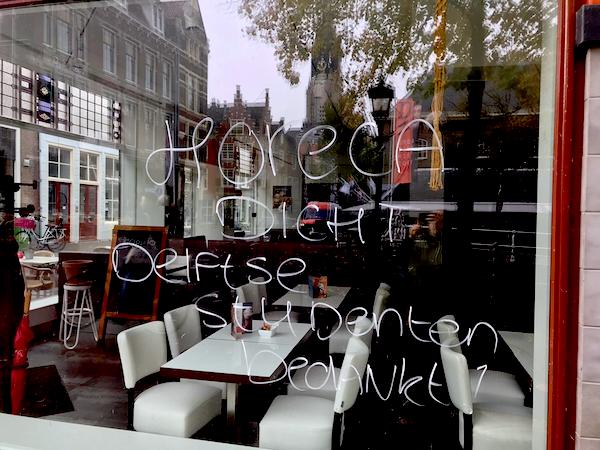 HORECA
DICHT
Delftse
studenten
bedankt!